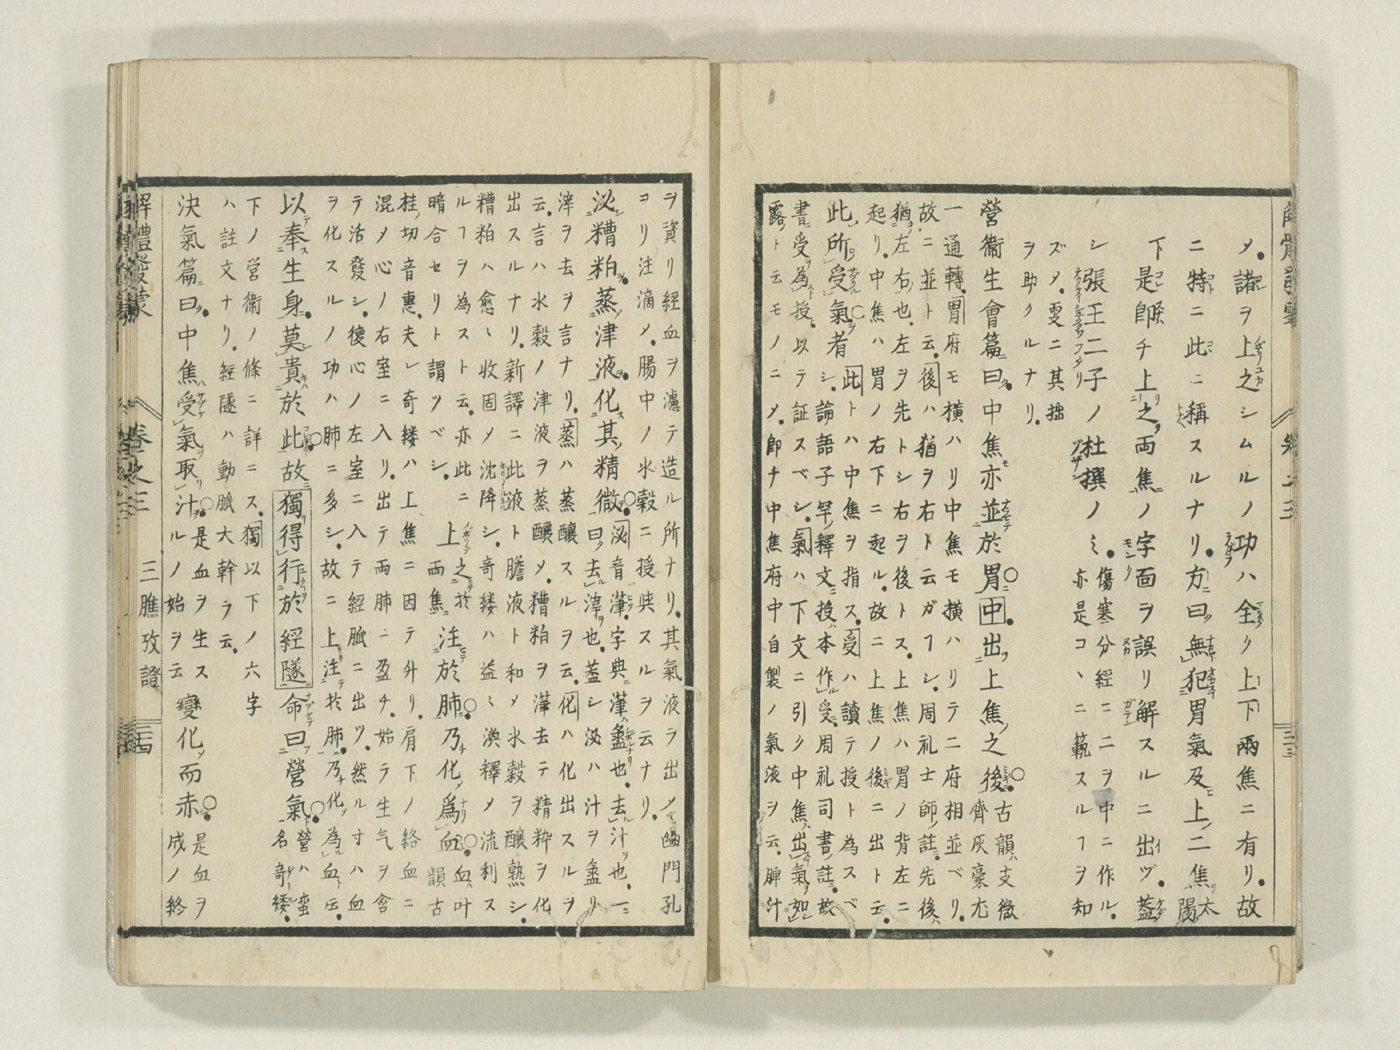 メ諸ヲ上之シムルノ功ハ全ク上下兩焦ニ有リ故
ニ特ニ此ニ稱スルナリ方ニ曰無犯胃氣及上二焦太陽
下是即チ上之兩焦ノ字面ヲ誤リ解スルニ出ヅ蓋
シ張王二子ノ杜撰ノミ傷寒分經ニニヲ中ニ作ル亦是コヽニ範スルヿヲ知
ズメ更ニ其拙
ヲ助クルナリ
營衞生會篇曰中焦亦並於胃中出上焦之後古韻ハ支微齊灰豪尤
一通轉胃府モ横ハリ中焦モ横ハリテ二府相並ベリ
故ニ並ト云後ハ猶ヲ右ト云ガフシ周礼士師註先後ハ
猶左右也左ヲ先トシ右ヲ後トス上焦ハ胃ノ背左ニ
起リ中焦ハ胃ノ右下ニ起ル故ニ上焦ノ後ニ出ト云
此所受氣者此トハ中焦ヲ指ス受ハ讀テ授ト為スベシ論語子罕釋文授本作受周礼司書註故
書受為授以テ証スベシ氣ハ下文ニ引ク中焦出氣如
露ト云モノニメ即チ中焦府中自製ノ氣液ヲ云脾汁
ヲ資リ経血ヲ濾テ造ル所ナリ其氣液ヲ出メ幽門孔
コリ注滴メ腸中ノ水穀ニ授與スルヲ云ナリ
泌糟粕蒸津液化其精微泌音潷字典潷盝也去汁也一曰去滓也蓋シ泌ハ汁ヲ盝リ
滓ヲ去ヲ言ナリ蒸ハ蒸釀スルヲ云化ハ化出スルヲ
云言ハ水穀ノ津液ヲ蒸釀メ糟粕ヲ潷去テ精粹ヲ化
出スルナリ新譯ニ此液ト膽液ト和メ水穀ヲ釀熟シ
糟粕ハ愈〻收固メ沈降シ奇縷ハ益〻渙釋メ流利ス
ルヿヲ為スト云亦此ニ
暗合セリト謂ツベシ上之兩焦於注於肺乃化爲血血ハ叶古韻
桂切音惠夫レ奇縷ハ上焦ニ因テ升リ肩下ノ絡血ニ
混メ心ノ右室ニ入リ出テ両肺ニ盈チ始ラ生气ヲ含
テ活發シ復心ノ左室ニ入テ経脈ニ出ツ然ル寸ハ血
ヲ化スルノ功ハ肺ニ多シ故ニ上注於肺乃化為血ト云
以奉生身莫貴於此故獨得行於經隧命曰營氣營ハ蛮名奇縷
下ノ営衞ノ條ニ詳ニス獨以下ノ六字
ハ註文ナリ経隧ハ動脈大幹ラ云
決氣篇曰中焦受氣取汁是血ヲ生スルノ始ヲ云變化而赤是血ヲ成ノ終
解體發蒙 卷之三 三膲攷證 三十四